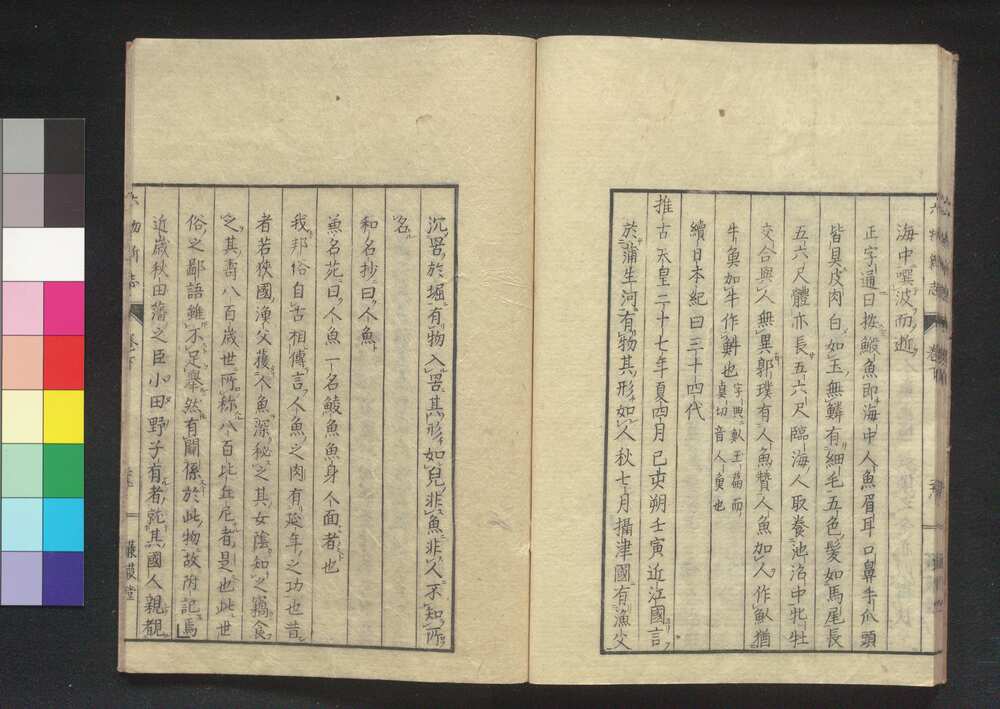 海中噀波而逝
正字通曰按鰕魚即海中人魚眉耳口鼻手爪頭
皆具皮肉白如玉無鱗有細毛五色髮如馬尾長
五六尺體亦長五六尺臨海人取養池沼中牝牡
交合與人無異郭璞有人魚贊人魚加人作魜猶
牛魚加牛作䱁也
字典魜玉篇而
真切音人魚也
續日本紀曰三十四代
推古天皇二十七年夏四月己亥朔壬寅近江國言
於蒲生河有物其形如人秋七月攝津國有漁父
沉罟於堀有物入罟其形如兒非魚非人不知所
名
和名抄曰人魚
兼名苑曰人魚一名鯪魚魚身人面者也
我邦俗自古相傳言人魚之肉有延年之功也昔
者若狹國漁父獲人魚深秘之其女陰知之竊食
之其壽八百歲世所稱八百比丘尼者是也此世
俗之鄙語雖不足舉然有關係於此物故附記焉
近歲秋田藩之臣小田野子有者就其國人親覩
六物新志
卷下